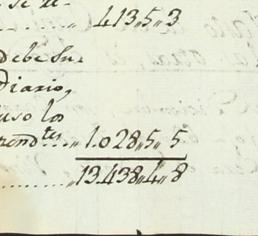 413,,5,,3
Debe Su-
Diario,
uso los
rend.tes.... 1.028,,5,,5
..........,,13.438,,4,,8